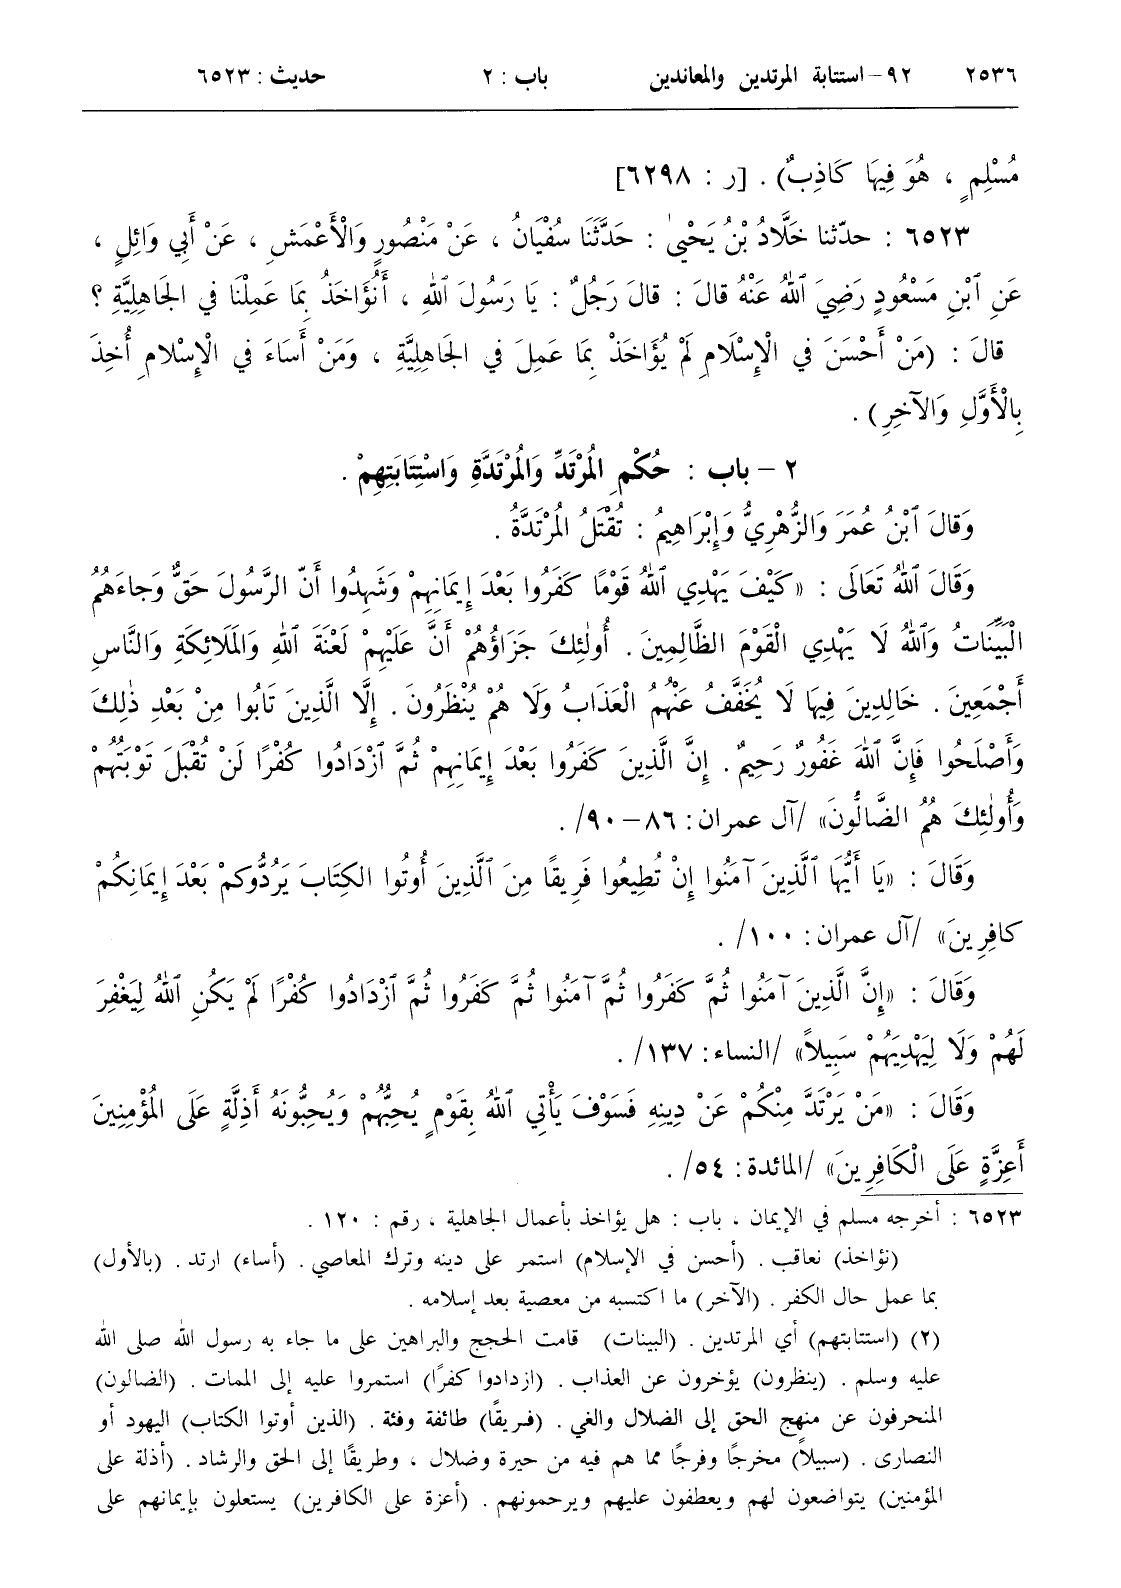 ٢٥٣٦ ٩٢ – استتابة المرتدين والمعاندين باب : ٢ حديث : ٦٥٢٣
مُسْلِمٍ ، هُوَ فِيهَا كَاذِبٌ) . [ر : ٦٢٩٨]
٦٥٢٣ : حدّثنا خَلَّادُ بْنُ يَحْيىٰ : حَدَّثَنَا سُفْيَانُ ، عَنْ مَنْصُورٍ وَالْأَعْمَشِ ، عَنْ أَبِي وَائِلٍ ،
عَنِ ٱبْنِ مَسْعُودٍ رَضِيَ ٱللهُ عَنْهُ قالَ : قالَ رَجُلٌ : يَا رَسُولَ ٱللهِ ، أَنُؤَاخَذُ بِمَا عَمِلْنَا في الجَاهِلِيَّةِ ؟
قالَ : (مَنْ أَحْسَنَ في الْإِسْلَامِ لَمْ يُؤَاخَذْ بِمَا عَمِلَ في الجَاهِلِيَّةِ ، وَمَنْ أَسَاءَ في الْإِسْلَامِ أُخِذَ
بِالْأَوَّلِ وَالآخِرِ) .
٢ – باب : حُكْمِ المُرْتَدِّ وَالمُرْتَدَّةِ وَاسْتِتَابَتِهِمْ .
وَقالَ ٱبْنُ عُمَرَ وَالزُّهْرِيُّ وَإِبْرَاهِيمُ : تُقْتَلُ المُرْتَدَّةُ .
وَقَالَ ٱللهُ تَعَالَى : «كَيْفَ يَهْدِي ٱللهُ قَوْمًا كَفَرُوا بَعْدَ إِيمَانِهِمْ وَشَهِدُوا أَنَّ الرَّسُولَ حَقٌّ وَجاءَهُمُ
الْبَيِّنَاتُ وَٱللهُ لَا يَهْدِي الْقَوْمَ الظَّالِمِينَ . أُولٰئِكَ جَزَاؤُهُمْ أَنَّ عَلَيْهِمْ لَعْنَةَ ٱللهِ وَالمَلَائِكَةِ وَالنَّاسِ
أَجْمَعِينَ . خَالِدِينَ فِيهَا لَا يُخَفَّفُ عَنْهُمُ الْعَذَابُ وَلَا هُمْ يُنْظَرُونَ . إِلَّا الَّذِينَ تَابُوا مِنْ بَعْدِ ذٰلِكَ
وَأَصْلَحُوا فَإِنَّ ٱللهَ غَفُورٌ رَحِيمٌ . إِنَّ الَّذِينَ كَفَرُوا بَعْدَ إِيمَانِهِمْ ثُمَّ ٱزْدَادُوا كُفْرًا لَنْ تُقْبَلَ تَوْبَتُهُمْ
وَأُولٰئِكَ هُمُ الضَّالُّونَ» /آل عمران: ٨٦–٩٠/ .
وَقَالَ : «يَا أَيُّهَا ٱلَّذِينَ آمَنُوا إِنْ تُطِيعُوا فَرِيقًا مِنَ ٱلَّذِينَ أُوتُوا الكِتَابَ يَرُدُّوكمْ بَعْدَ إِيمَانِكُمْ
كافِرِينَ» /آل عمران: ١٠٠/ .
وَقَالَ : «إِنَّ الَّذِينَ آمَنُوا ثُمَّ كَفَرُوا ثُمَّ آمَنُوا ثُمَّ كَفَرُوا ثُمَّ ٱزْدَادُوا كُفْرًا لَمْ يَكُنِ ٱللهُ لِيَغْفِرَ
لَهُمْ وَلَا لِيَهْدِيَهُمْ سَبِيلاً» /النساء: ١٣٧/ .
وَقَالَ : «مَنْ يَرْتَدَّ مِنْكُمْ عَنْ دِينِهِ فَسَوْفَ يَأْتِي ٱللهُ بِقَوْمٍ يُحِبُّهُمْ وَيُحِبُّونَهُ أَذِلَّةٍ عَلَى المُؤْمِنِينَ
أَعِزَّةٍ عَلَى الْكَافِرِينَ» /المائدة: ٥٤/ .
٦٥٢٣ : أخرجه مسلم في الإيمان ، باب : هل يؤاخذ بأعمال الجاهلية ، رقم : ١٢٠ .
(نؤاخذ) نعاقب . (أحسن في الإسلام) استمر على دينه وترك المعاصي . (أساء) ارتد . (بالأول)
بما عمل حال الكفر . (الآخر) ما اكتسبه من معصية بعد إسلامه .
(٢) (استتابتهم) أي المرتدين . (البينات) قامت الحجج والبراهين على ما جاء به رسول الله صلى الله
عليه وسلم . (ينظرون) يؤخرون عن العذاب . (ازدادوا كفرًا) استمروا عليه إلى الممات . (الضالون)
المنحرفون عن منهج الحق إلى الضلال والغي . (فريقًا) طائفة وفئة . (الذين أوتوا الكتاب) اليهود أو
النصارى . (سبيلاً) مخرجًا وفرجًا مما هم فيه من حيرة وضلال ، وطريقًا إلى الحق والرشاد . (أذلة على
المؤمنين) يتواضعون لهم ويعطفون عليهم ويرحمونهم . (أعزة على الكافرين) يستعلون بإيمانهم على